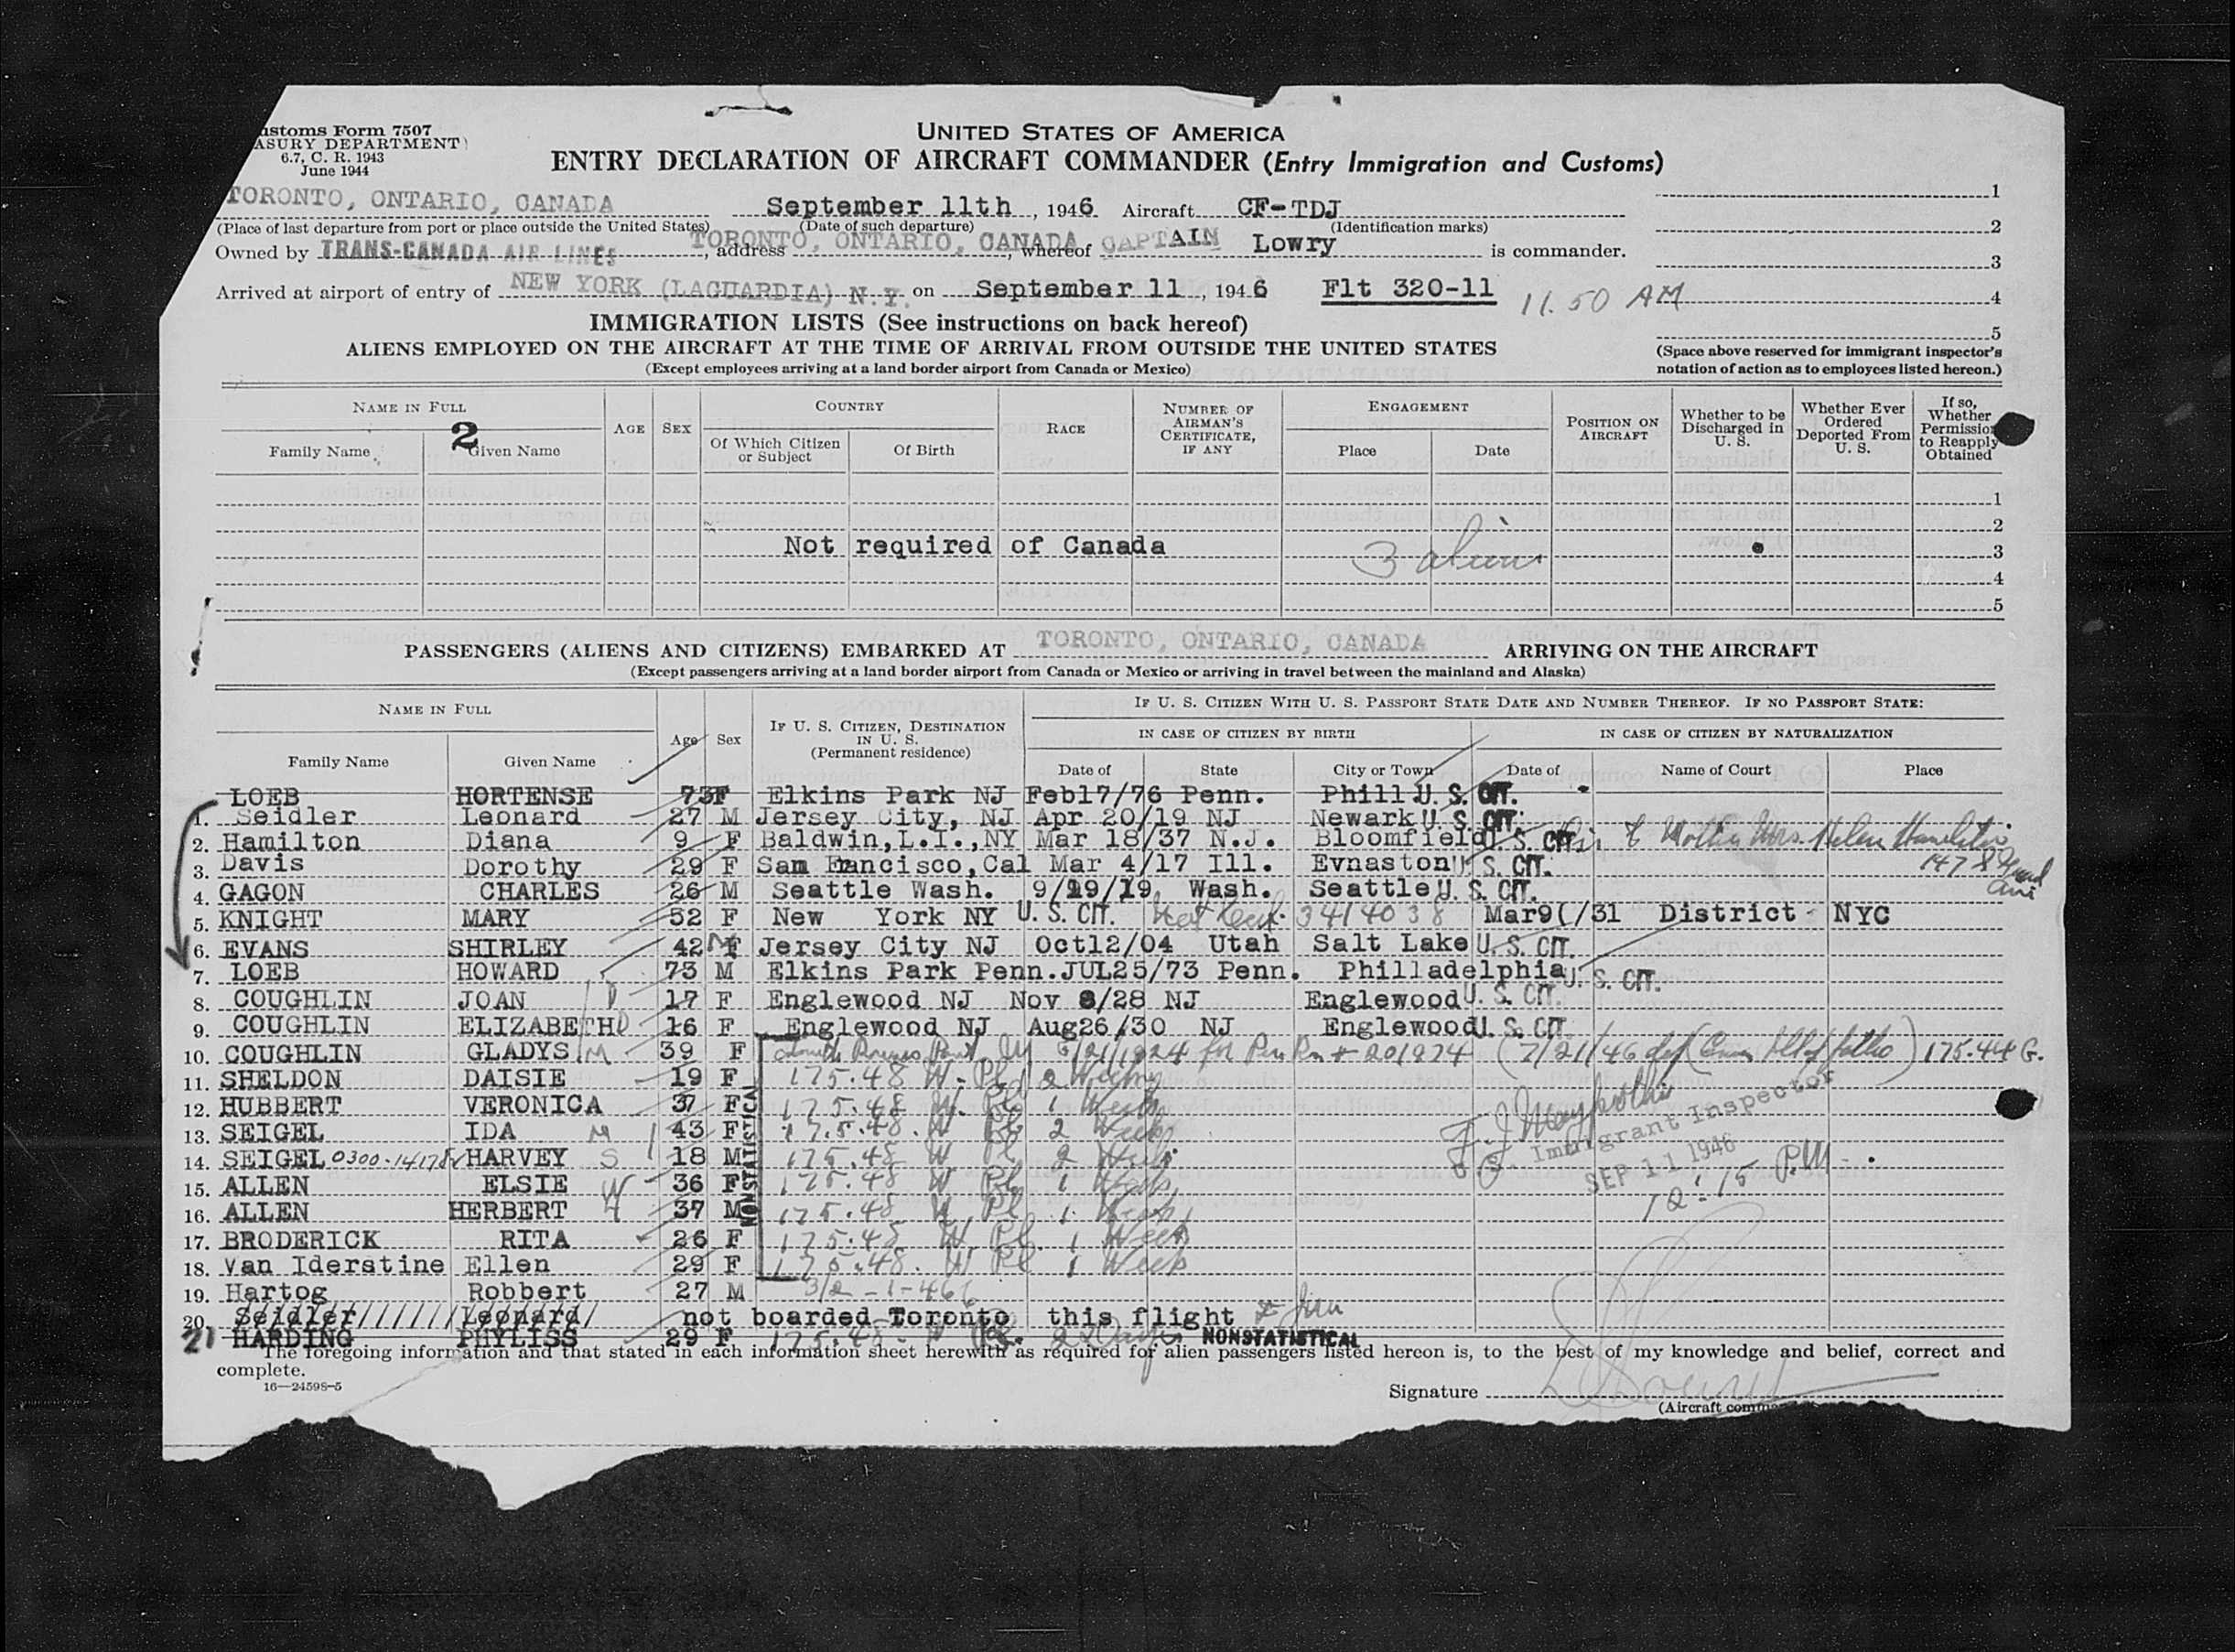 ustoms Form 7507
ASURY DEPARTMENT)
6.7, C. R. 1943
June 1944
UNITED STATES OF AMERICA
ENTRY DECLARATION OF AIRCRAFT COMMANDER (Entry Immigration and Customs)
TORONTO, ONTARIO, CANADA September 11th, 1946 Aircraft CF-TDJ 1
(Place of last departure from port or place outside the United States) (Date of such departure) (Identification marks) 2
Owned by TRANS-CANADA AIR LINES, address TORONTO, ONTARIO, CANADA, whereof CAPTAIN Lowry is commander. 3
Arrived at airport of entry of NEW YORK (LAGUARDIA) N.Y. on September 11, 1946 Flt 320-11 11.50 AM 4
IMMIGRATION LISTS (See instructions on back hereof) 5
ALIENS EMPLOYED ON THE AIRCRAFT AT THE TIME OF ARRIVAL FROM OUTSIDE THE UNITED STATES
(Except employees arriving at a land border airport from Canada or Mexico)
(Space above reserved for immigrant inspector's
notation of action as to employees listed hereon.)
NAME IN FULL AGE SEX COUNTRY RACE NUMBER OF AIRMAN'S CERTIFICATE, IF ANY ENGAGEMENT POSITION ON AIRCRAFT Whether to be Discharged in U. S. Whether Ever Ordered Deported From U. S. If so, Whether Permission to Reapply Obtained
2
Family Name Given Name Of Which Citizen or Subject Of Birth Place Date
1
2
Not required of Canada 3
4
5
PASSENGERS (ALIENS AND CITIZENS) EMBARKED AT TORONTO, ONTARIO, CANADA ARRIVING ON THE AIRCRAFT
(Except passengers arriving at a land border airport from Canada or Mexico or arriving in travel between the mainland and Alaska)
NAME IN FULL Age Sex IF U. S. CITIZEN, DESTINATION IN U. S. (Permanent residence) IF U. S. CITIZEN WITH U. S. PASSPORT STATE DATE AND NUMBER THEREOF. IF NO PASSPORT STATE:
IN CASE OF CITIZEN BY BIRTH IN CASE OF CITIZEN BY NATURALIZATION
Family Name Given Name Date of State City or Town Date of Name of Court Place
LOEB HORTENSE 73 F Elkins Park NJ Feb17/76 Penn. Phill U. S. CIT.
1. Seidler Leonard 27 M Jersey City, NJ Apr 20/19 NJ Newark U. S. CIT.
2. Hamilton Diana 9 F Baldwin,L.I.,NY Mar 18/37 N.J. Bloomfield U. S. CIT. Mother Mrs. Helen Hamilton
3. Davis Dorothy 29 F San Francisco,Cal Mar 4/17 Ill. Evnaston U. S. CIT. 147
4. GAGON CHARLES 26 M Seattle Wash. 9/19/19 Wash. Seattle U. S. CIT.
5. KNIGHT MARY 52 F New York NY U. S. CIT. 3414038 Mar9(/31 District NYC
6. EVANS SHIRLEY 42 M Jersey City NJ Oct12/04 Utah Salt Lake U. S. CIT.
7. LOEB HOWARD 73 M Elkins Park Penn. JUL25/73 Penn. Philladelphia U. S. CIT.
8. COUGHLIN JOAN D 17 F Englewood NJ Nov 8/28 NJ Englewood U. S. CIT.
9. COUGHLIN ELIZABETH D 16 F Englewood NJ Aug26/30 NJ Englewood U. S. CIT.
10. COUGHLIN GLADYS M 39 F 175.44 G.
11. SHELDON DAISIE 19 F 175.48 W. Pl 2 Weeks
12. HUBBERT VERONICA 37 F 175.48 W. Pl 1 Week
13. SEIGEL IDA M 43 F 175.48 W Pl 2 Weeks
14. SEIGEL 0300-14178 HARVEY S 18 M 175.48 W Pl 2 Weeks
15. ALLEN ELSIE W 36 F 175.48 W Pl 1 Week
16. ALLEN HERBERT H 37 M 175.48 W Pl 1 Week
17. BRODERICK RITA 26 F 175.48 W Pl 1 Week
18. Van Iderstine Ellen 29 F 175.48 W Pl 1 Week
NONSTATISTICAL
Immigrant Inspector
SEP 11 1946
12:15 P.M.
19. Hartog Robbert 27 M
20. Seidler////////Leonard/ not boarded Toronto this flight
21 HARDING PHYLISS 29 F 175.48 W Pl. 2 Days NONSTATISTICAL
The foregoing information and that stated in each information sheet herewith as required for alien passengers listed hereon is, to the best of my knowledge and belief, correct and
complete.
16—24598-5
Signature
(Aircraft